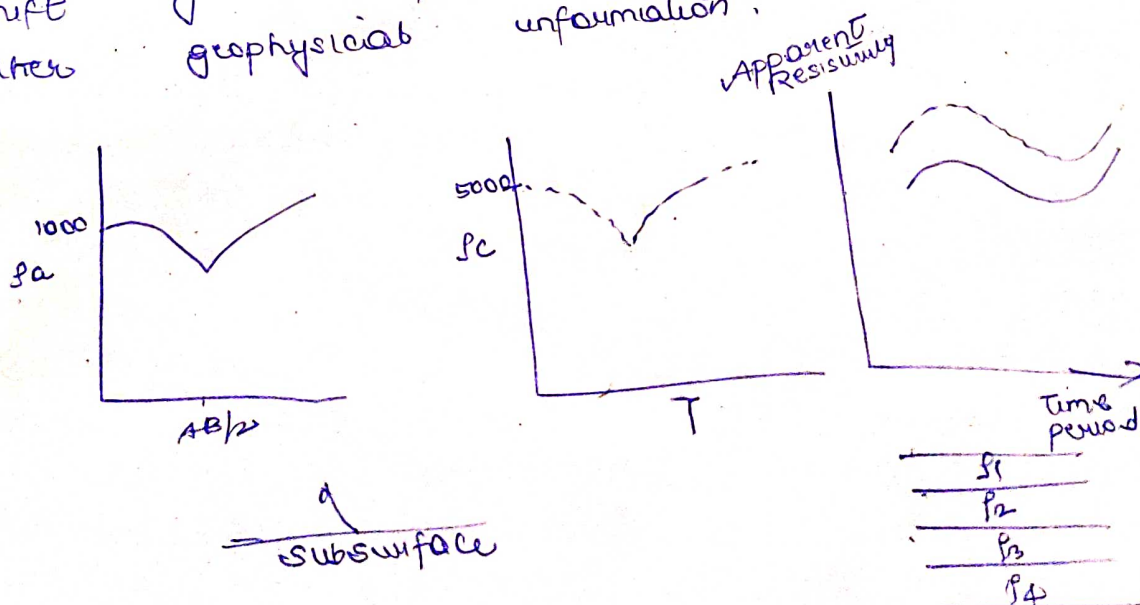 geophysicial unformation.
Apparent
Resisuvity
1000
ρa
AB/2
5000
ρc
T
Time
period
subsurface
ρ1
ρ2
ρ3
ρ4